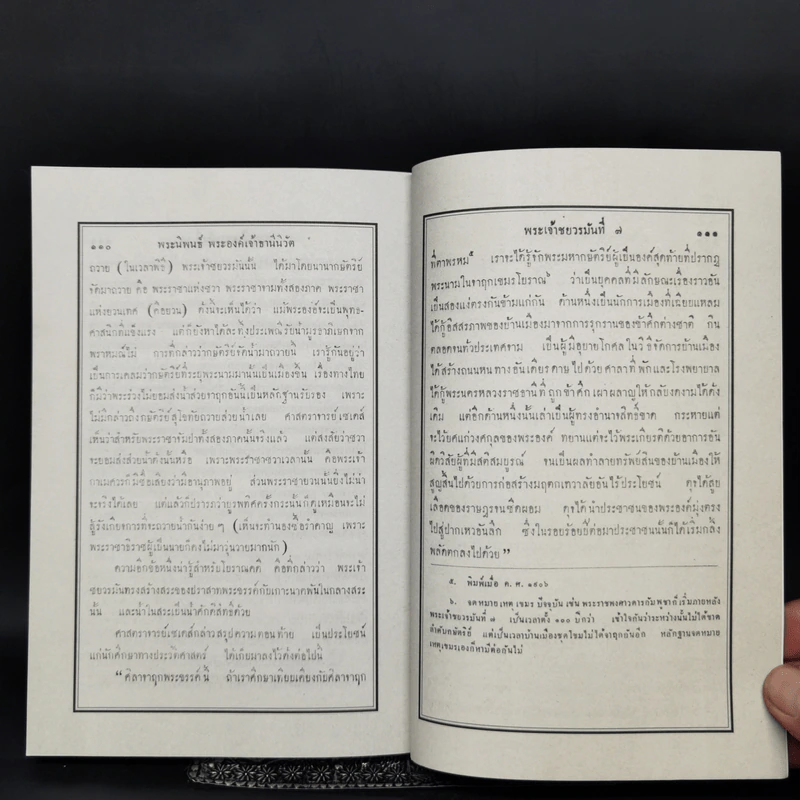 ๑๑๐ พระนิพนธ์ พระองค์เจ้าธานีนิวัต
ถวาย (ในเวลาพิธี) พระเจ้าชยวรมันนั้น ได้มาโดยนานากษัตริย์
จัดมาถวาย คือ พระราชาแห่งชวา พระราชาจามทั้งสองภาค พระราชา
แห่งยวนเทศ (คือยวน) ดังนี้จะเห็นได้ว่า แม้พระองค์จะเป็นพุทธ-
ศาสนิกที่แข็งแรง แต่ก็ยังหาได้ละทิ้งประเพณีรับน้ำมูรธาภิเษกจาก
พราหมณ์ไม่ การที่กล่าวว่ากษัตริย์จัดน้ำมาถวายนี้ เรารู้กันอยู่ว่า
เป็นการแสดงว่ากษัตริย์ที่ระบุพระนามมานั้นเป็นเมืองขึ้น เรื่องทางไทย
ก็มีว่าพระร่วงไม่ยอมส่งน้ำส่วยจารึกอันนี้เป็นหลักฐานรับรอง เพราะ
ไม่มีกล่าวถึงกษัตริย์สุโขทัยถวายส่วยน้ำเลย ศาสตราจารย์เซเดส์
เห็นว่าสำหรับพระราชาจามทั้งสองภาคนั้นจริงแล้ว แต่สงสัยว่าชวา
จะยอมส่งส่วยน้ำดังนั้นหรือ เพราะพระราชาชวาเวลานั้น คือพระเจ้า
กาเมศวรก็มีชื่อเสียงว่ามีอานุภาพอยู่ ส่วนพระราชายวนนั้นยิ่งไม่น่า
จะจริงได้เลย แต่แล้วก็ปรารภว่าบูรพทิศครั้งกระนั้นก็ดูเหมือนจะไม่
สู้รังเกียจการที่จะถวายน้ำกันง่าย ๆ (เห็นจะทำนองซื้อรำคาญ เพราะ
พระราชาธิราชผู้เป็นนายก็คงไม่มาวุ่นวายมากนัก)
ความอีกข้อหนึ่งน่ารู้สำหรับโบราณคดี คือที่กล่าวว่า พระเจ้า
ชยวรมันทรงสร้างสระของปราสาทพระขรรค์กับเกาะนาคพันในกลางสระ
นั้น และน้ำในสระเป็นน้ำศักดิ์สิทธิ์ด้วย
ศาสตราจารย์เซเดส์กล่าวสรุปความตอนท้าย เป็นประโยชน์
แก่นักศึกษาทางประวัติศาสตร์ ได้เก็บมาลงไว้ดังต่อไปนี้
“ศิลาจารึกพระขรรค์นี้ ถ้าเราศึกษาเทียบเคียงกับศิลาจารึก
พระเจ้าชยวรมันที่ ๗ ๑๑๑
ที่ตาพรหม๕ เราจะได้รู้จักพระมหากษัตริย์ผู้เป็นองค์สุดท้ายที่ปรากฏ
พระนามในจารึกเขมรโบราณ๖ ว่าเป็นบุคคลที่มีลักษณะเรื่องราวอัน
เป็นสองแง่ตรงกันข้ามแก่กัน ด้านหนึ่งเป็นนักการเมืองที่เฉียบแหลม
ได้กู้อิสสรภาพของบ้านเมืองมาจากการรุกรานของข้าศึกต่างชาติ กิน
ตลอดจนทั่วประเทศจาม เป็นผู้มีอุบายโกศลในวิธีจัดการบ้านเมือง
ได้สร้างถนนหนทางอันเดียรดาษไปด้วยศาลาที่พักและโรงพยาบาล
ได้กู้พระนครหลวงราชธานีที่ถูกข้าศึกเผาผลาญให้กลับงดงามได้ดัง
เดิม แต่อีกด้านหนึ่งนั้นเล่าเป็นผู้ทรงอำนาจสิทธิ์ขาด กระหายแต่
จะไว้ยศแก่วงศ์กุลของพระองค์ ทยานแต่จะไว้พระเกียรติด้วยอาการอัน
ผิดวิสัยผู้ที่มีสติสมบูรณ์ จนเป็นผลทำลายทรัพย์สินของบ้านเมืองให้
สูญสิ้นไปด้วยการก่อสร้างมฤตกเทวาลัยอันไร้ประโยชน์ ดุจได้สูบ
เลือดของราษฎรจนซีดผอม ดุจได้นำประชาชนของพระองค์มุ่งตรง
ไปสู่ปากเหวอันลึก ซึ่งในรอยร้อยปีต่อมาประชาชนนั้นก็ได้เริ่มกลิ้ง
พลัดตกลงไปด้วย”
๕. พิมพ์เมื่อ ค.ศ. ๑๙๐๖
๖. จดหมายเหตุเขมรปัจจุบัน เช่นพระราชพงศาวดารกัมพูชาก็เริ่มภายหลัง
พระเจ้าชยวรมันที่ ๗ เป็นเวลาตั้ง ๑๐๐ ปีกว่า เข้าใจกันว่าระหว่างนั้นไม่ได้ขาด
ลำดับกษัตริย์ แต่เป็นเวลาบ้านเมืองซุดโซมไม่ได้จารึกกันอีก หลักฐานจดหมาย
เหตุเขมรเองก็หามีต่ออันไม่